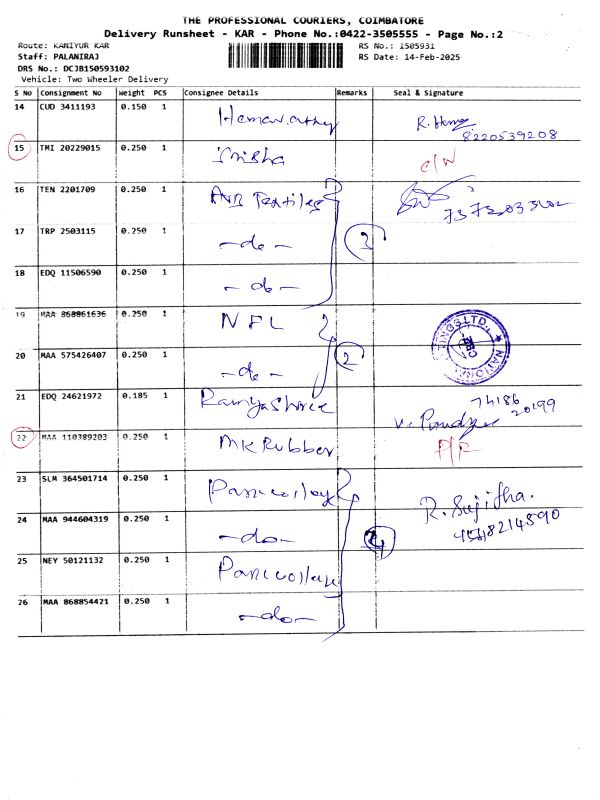 THE PROFESSIONAL COURIERS, COIMBATORE
Delivery Runsheet - KAR - Phone No.:0422-3505555 - Page No.:2
Route: KANIYUR KAR RS No.: 1505931
Staff: PALANIRAJ RS Date: 14-Feb-2025
DRS No.: DCJB150593102
Vehicle: Two Wheeler Delivery
S No Consignment No Weight PCS Consignee Details Remarks Seal & Signature
14 CUD 3411193 0.150 1 R. Hema
8220539208
15 TMI 20229015 0.250 1 Inisha
16 TEN 2201709 0.250 1 AVB Textiles
17 TRP 2503115 0.250 1 -do- 3
18 EDQ 11506590 0.250 1 -do-
19 MAA 868861636 0.250 1 NFL
20 MAA 575426407 0.250 1 -do- 2
21 EDQ 24621972 0.185 1 Ramyashree 74186
20199
22 MAA 110389203 0.250 1 MK Rubber
23 SLM 364501714 0.250 1
24 MAA 944604319 0.250 1 -do- 4 R. Sujitha.
25 NEY 50121132 0.250 1
26 MAA 868854421 0.250 1 -do-